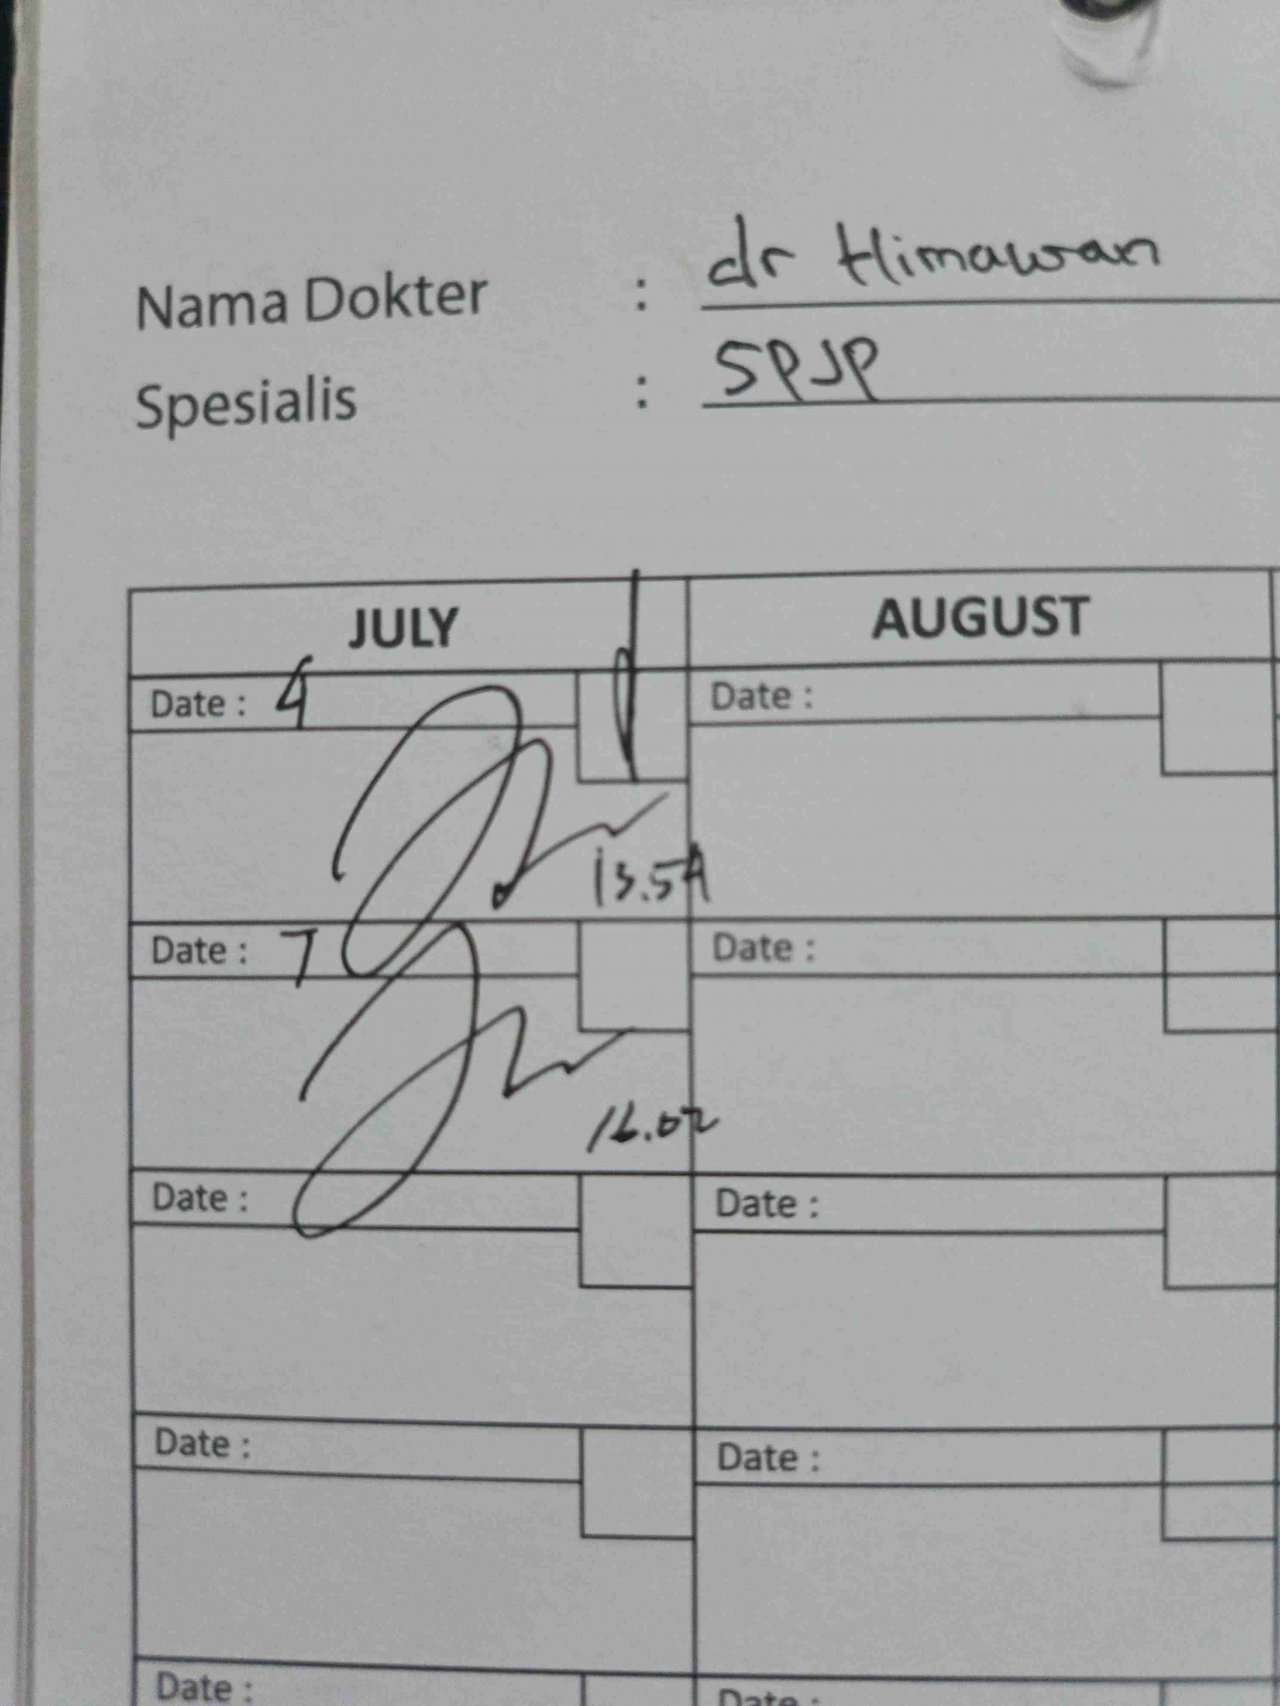 Nama Dokter : dr Himawan
Spesialis : SPJP
JULY AUGUST
Date : 4 Date :
13.54
Date : 7 Date :
16.02
Date : Date :
Date : Date :
Date : Date :